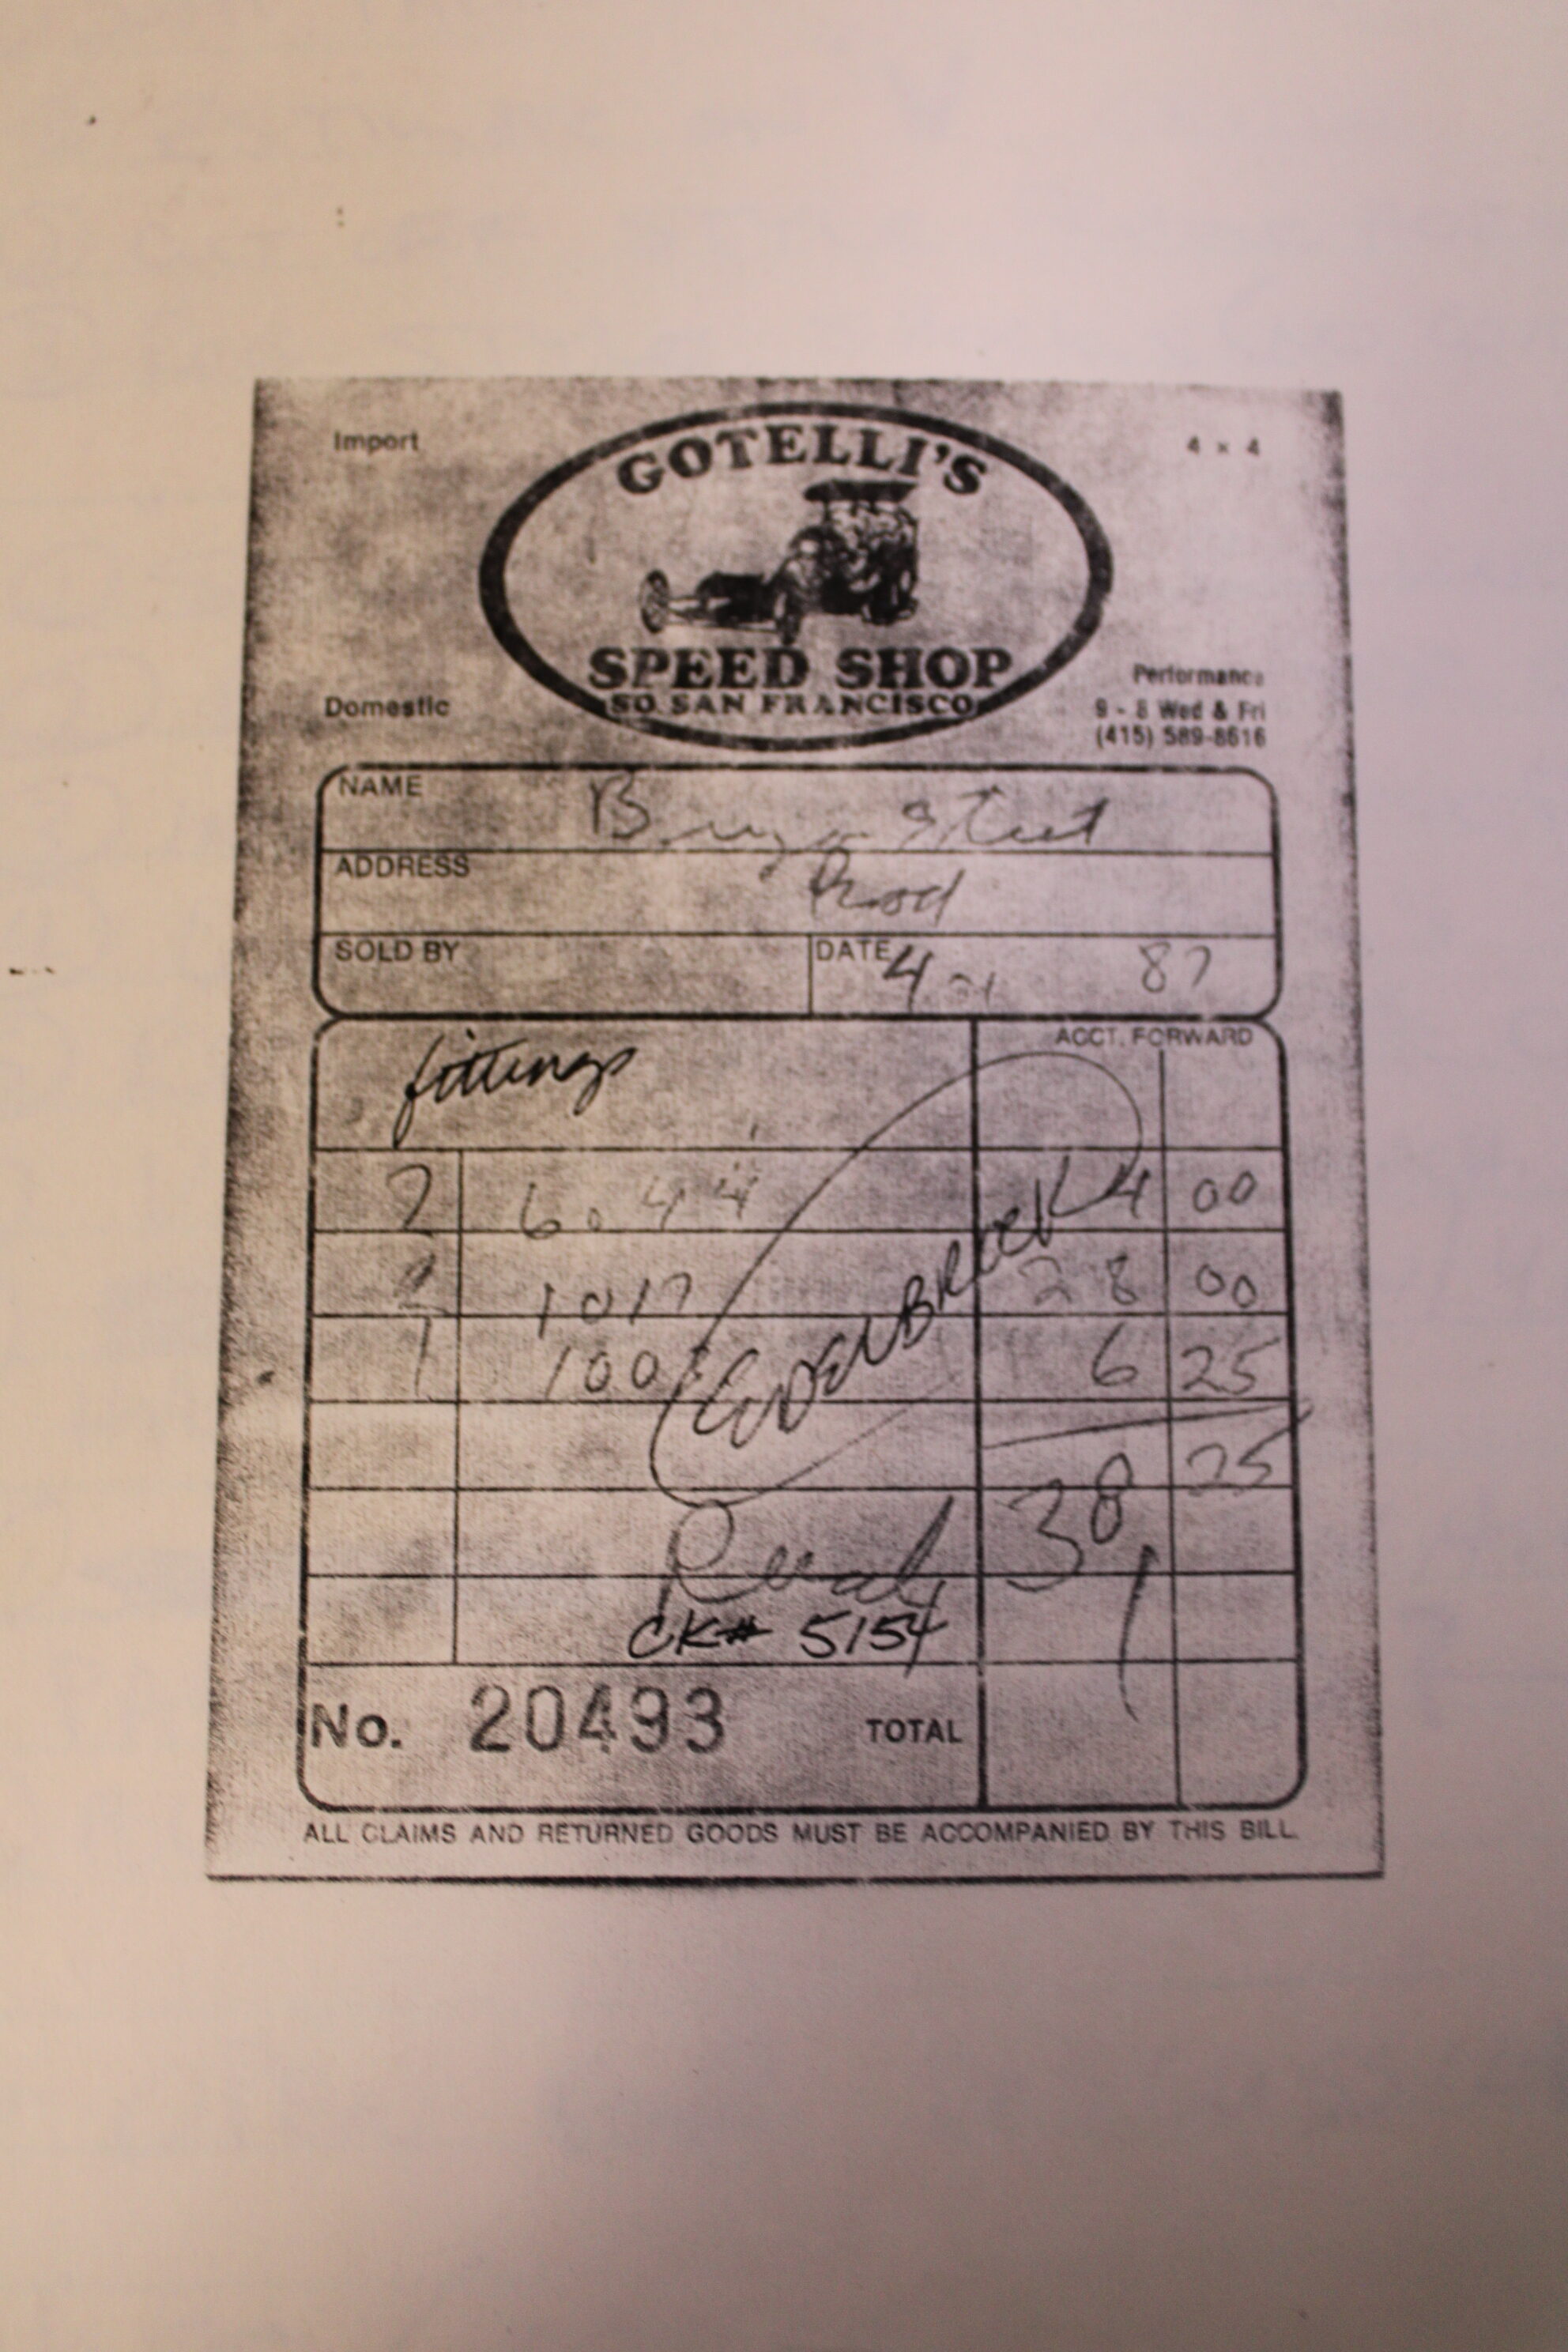 Import
4 x 4
GOTELLI'S
SPEED SHOP
SO. SAN FRANCISCO
Domestic
Performance
9 - 8 Wed & Fri
(415) 589-8616
NAME
Street
ADDRESS Prod
SOLD BY
DATE 4 87
ACCT. FORWARD
fittings
2 6044 4 00
1017 28 00
1 100 6 25
EDDENBROCK
38, 25
CK# 5154
No. 20493 TOTAL
ALL CLAIMS AND RETURNED GOODS MUST BE ACCOMPANIED BY THIS BILL.